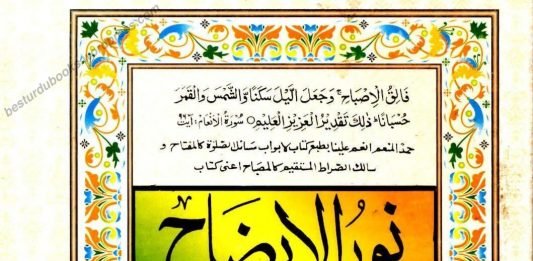 besturdubooks
فَالِقُ الْاِصْبَاحِ ۚ وَجَعَلَ الَّیْلَ سَكَنًا وَّالشَّمْسَ وَالْقَمَرَ
حُسْبَانًا ؕ ذٰلِكَ تَقْدِیْرُ الْعَزِیْزِ الْعَلِیْمِ ○ سُوْرَةُ الْاَنْعَام: آیت
حمدًا لمنعم انعم علینا بطبع کتاب لابواب مسائل الصلوٰة کالمفتاح و
سالك الصراط المستقیم کالمصباح اعنی کتاب
نور الایضاح